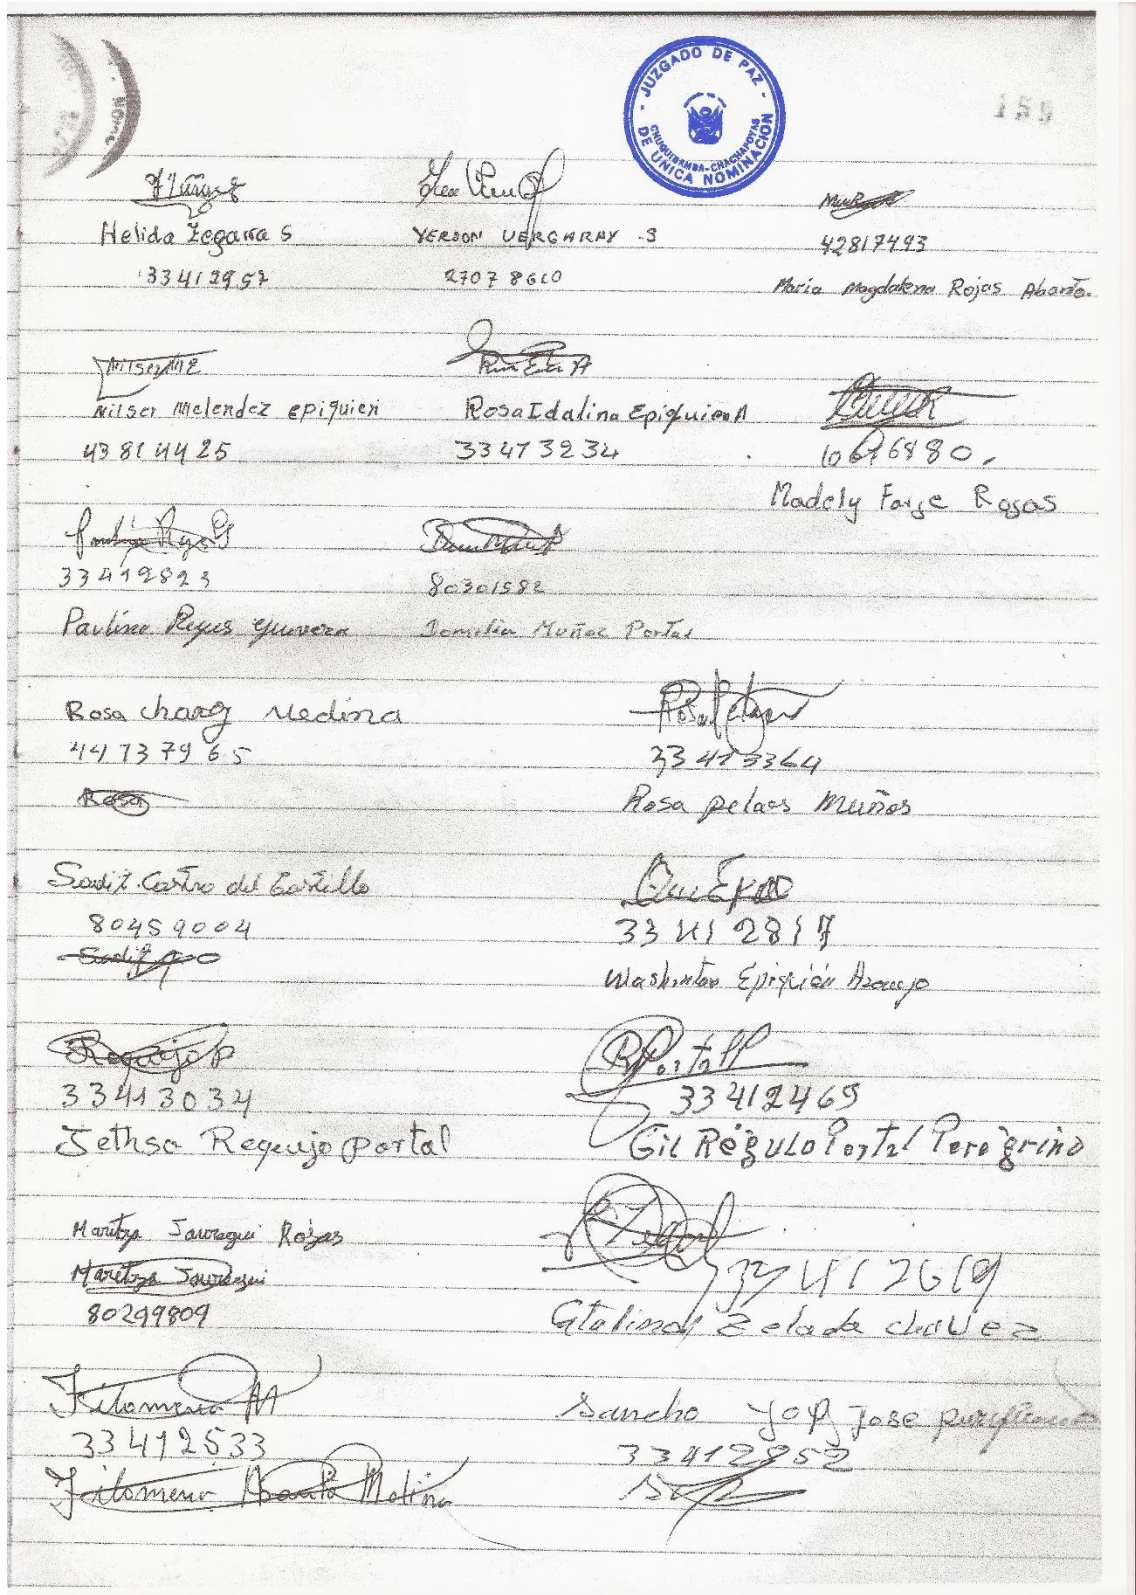 - JUZGADO DE PAZ -
CHUQUIBAMBA-CHACHAPOYAS
DE UNICA NOMINACION
159
Helida Zegarra S
33412957
YERSON VERGARAY S
27078610
42817493
Maria Magdalena Rojas Abanto.
Nilser M E
Nilser Melendez epiquien
43814425
Rosa Idalina Epiquien A
33413234
Madely Farje Rojas
33412823
Paulina Reyes Guevera
80301582
Domilia Muñoz Portal
Rosa chavez Medina
44737965
Rosa
Rosa Pelaez
33413364
Rosa pelaes Muños
Sadit. Castro del Castillo
80459004
Sadit
33412817
Washinton Epiquién Araujo
Requejo P
33413034
Jethso Requejo portal
R Portal P
33412469
Gil Régulo Portal Peregrino
Maritza Jauregui Rojas
Maritza Jauregui
80299809
33412619
Catalina Zelada chavez
Filomena A M
33412533
Filomena Abanto Molina
Sancho Yop Jose
33412852